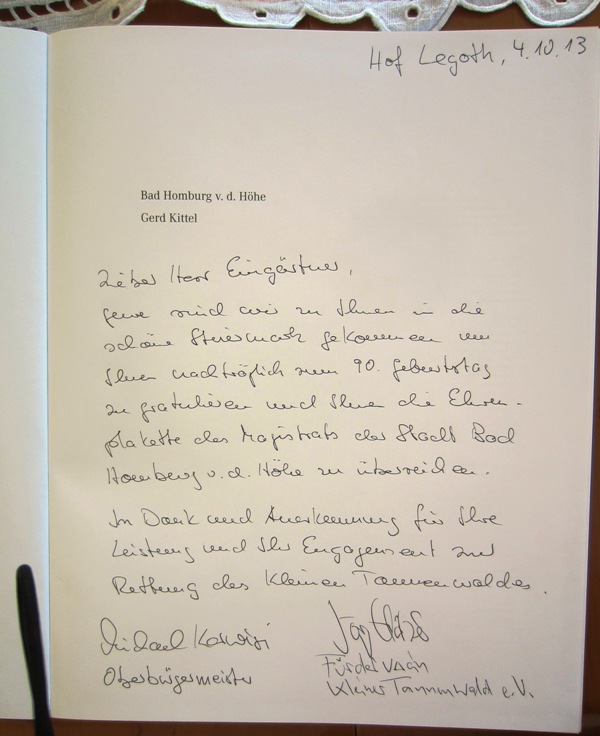 Hof Legoth, 4.10.13
Bad Homburg v. d. Höhe
Gerd Kittel
Lieber Herr Eingärtner,
gerne sind wir zu Ihnen in die
schöne Steiermark gekommen um
Ihnen nachträglich zum 90. Geburtstag
zu gratulieren und Ihnen die Ehren-
plakette des Magistrats der Stadt Bad
Homburg v. d. Höhe zu überreichen.
In Dank und Anerkennung für Ihre
Leistung und Ihr Engagement zur
Rettung des Kleinen Tannenwaldes.
Michael Korwisi
Oberbürgermeister
Förderverein
Kleiner Tannenwald e.V.